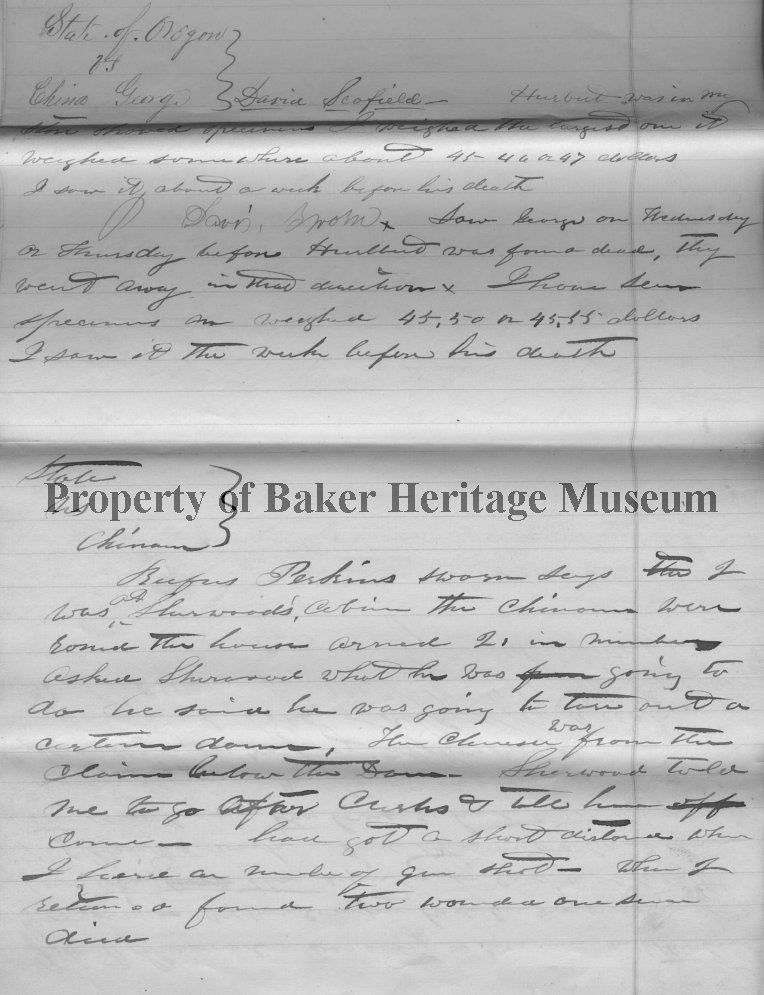 State of Oregon
vs
China George } David Scofield - Hurbut was in my
store showed specimens I weighed the largest one it
weighed somewhere about 45 46 or 47 dollars
I saw it about a week before his death
Davis, sworn x Saw George on Wednesday
or Thursday before Hurlbut was found dead, they
went away in that direction x I have seen
specimens weighed 45,50 or 45,55 dollars
I saw it the week before his death
State
vs
Property of Baker Heritage Museum
Chinam }
Rufus Perkins sworn says the I
was at Sherwood's, Cabin the Chinam were
round the house armed 21 in number
asked Sherwood what he was going to
do he said he was going to tare out a
certain dam, The Chinese was from the
claim below the Dam - Sherwood told
me to go after Clerks & tell him off
come - had got a short distance when
I heard a number of gun shot - when I
returned found two wounded one since
died